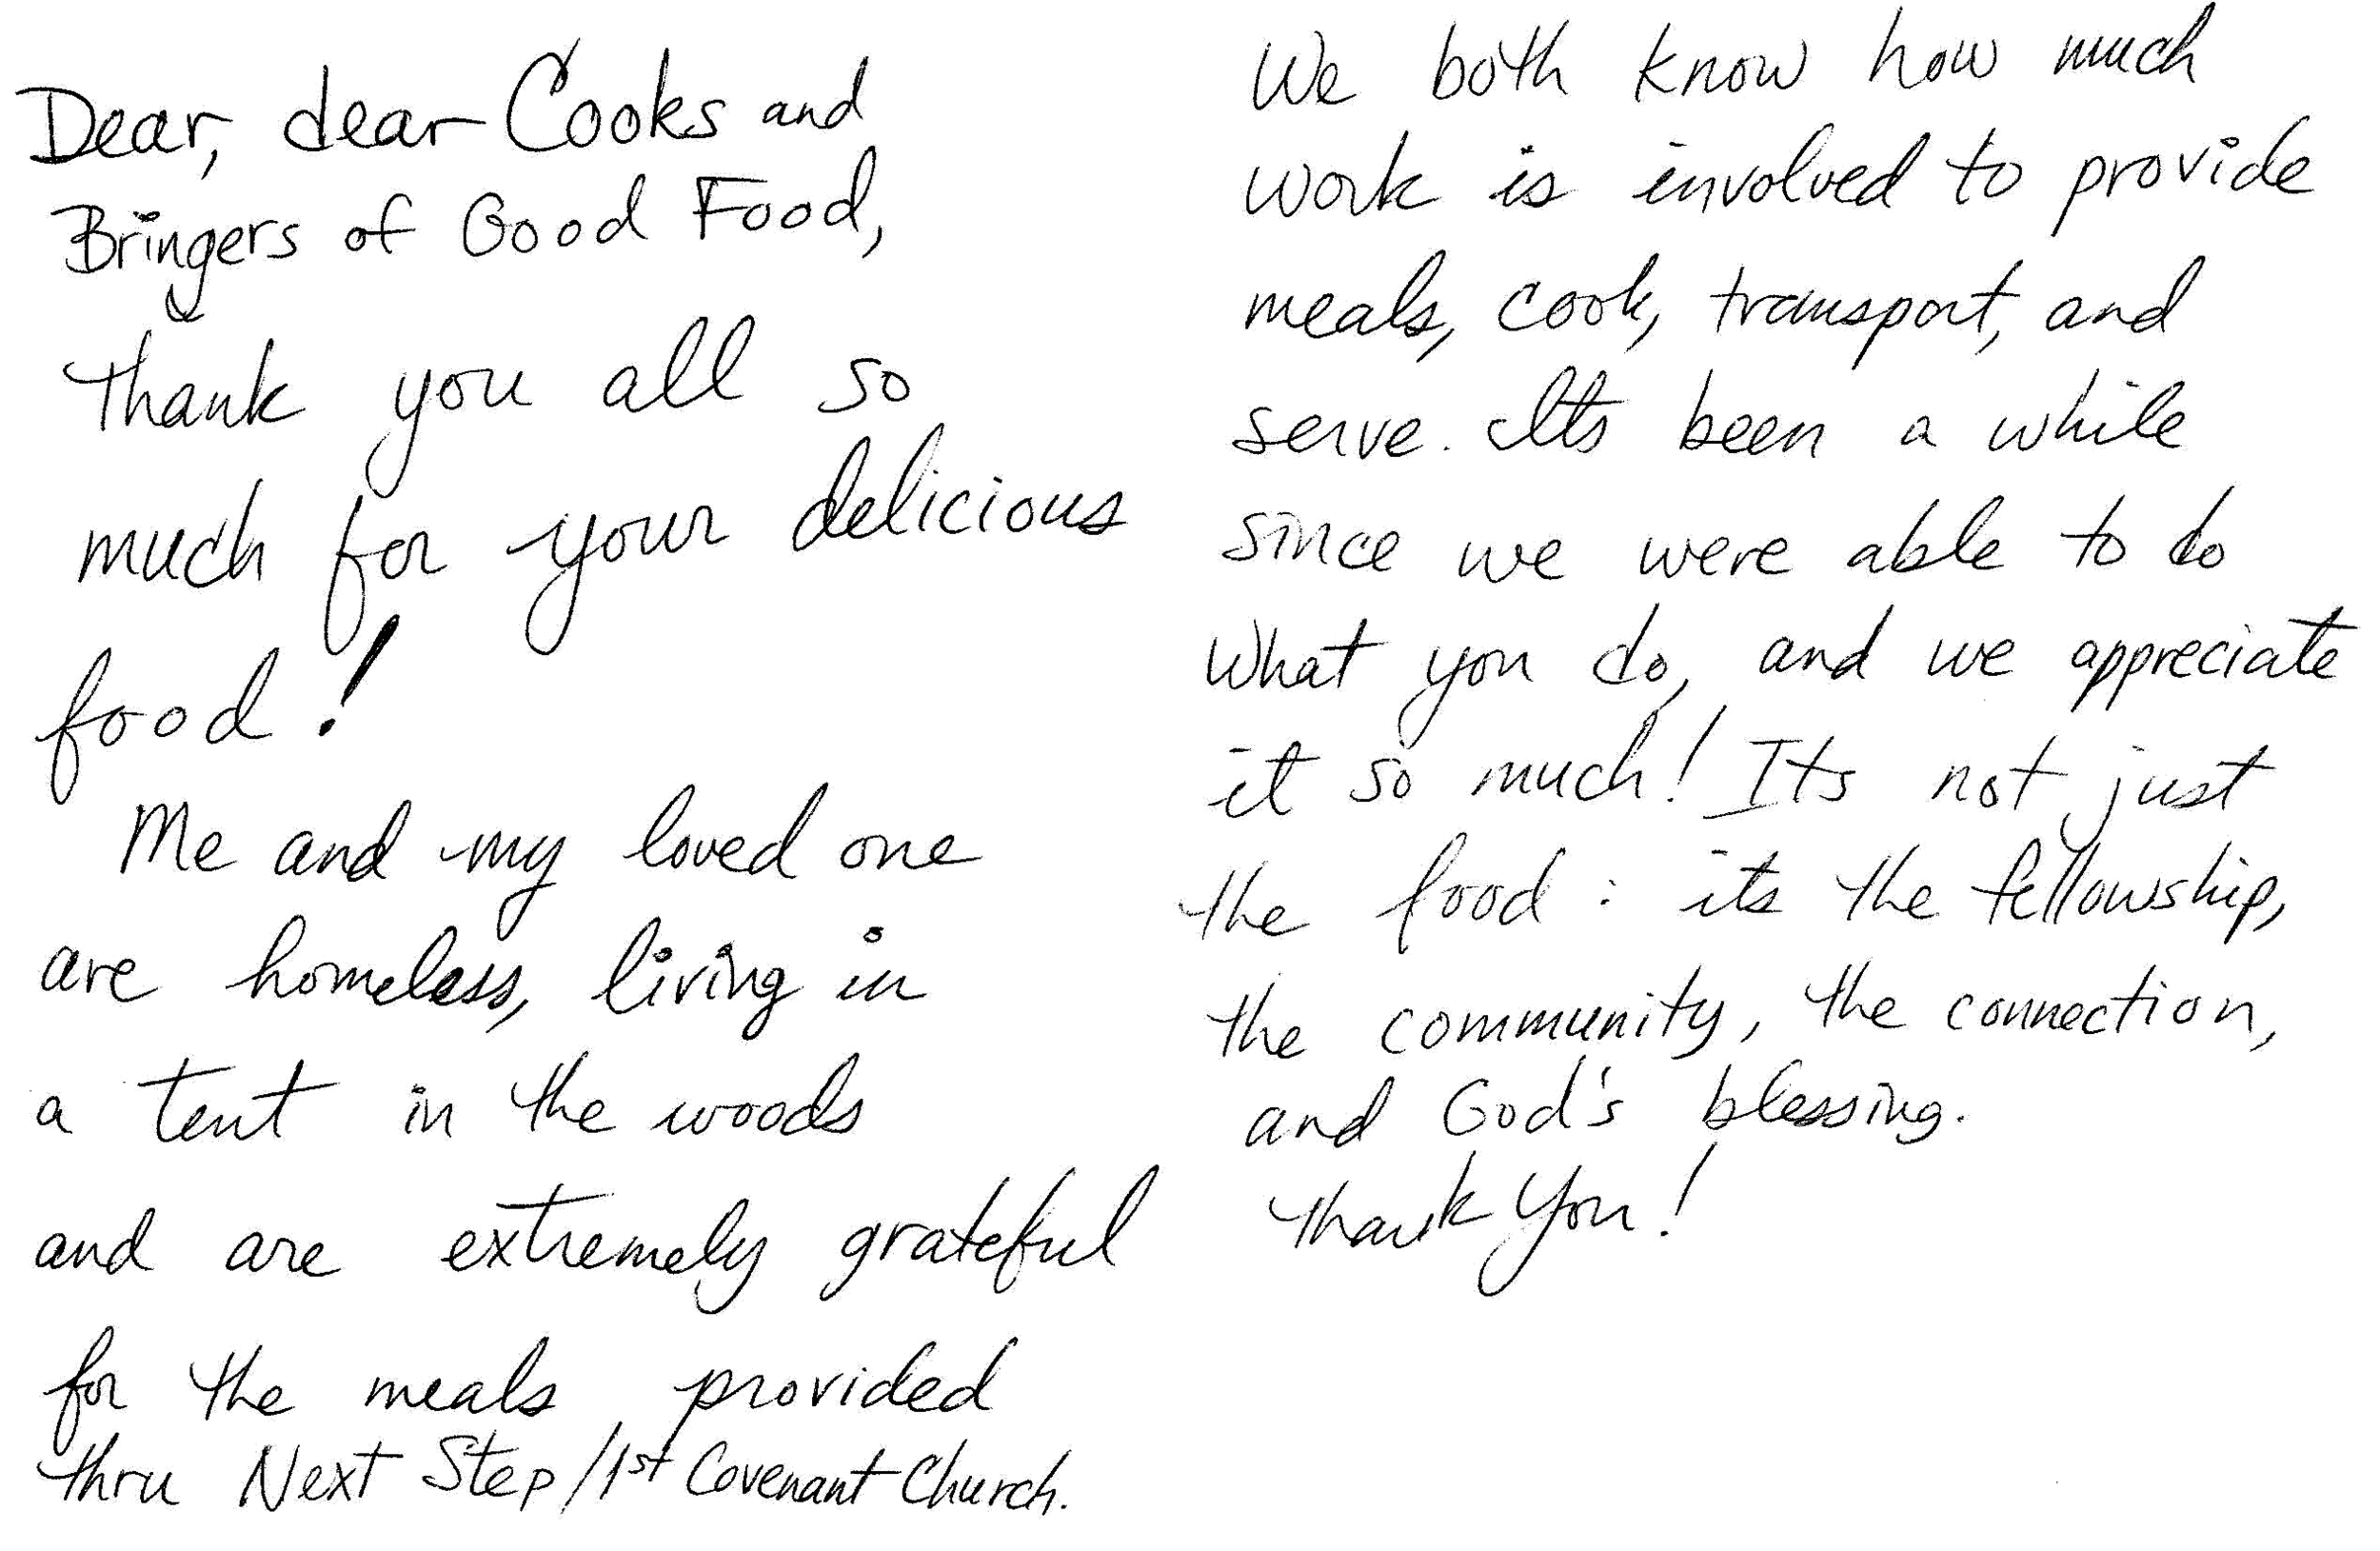 Dear, dear Cooks and
Bringers of Good Food,
Thank you all so
much for your delicious
food!
Me and my loved one
are homeless, living in
a tent in the woods
and are extremely grateful
for the meals provided
thru Next Step/1st Covenant Church.
We both know how much
work is involved to provide
meals, cook, transport, and
serve. Its been a while
since we were able to do
what you do, and we appreciate
it so much! Its not just
the food: its the fellowship,
the community, the connection,
and God's blessing.
Thank You!